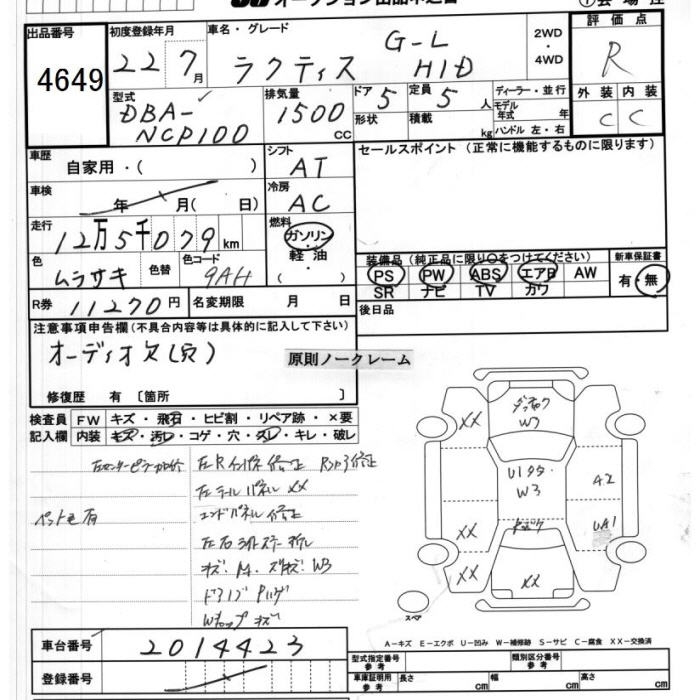 オークション出品申込書
出品番号
4649
初度登録年月
22 7月
車名・グレード
ラクティス G-L HID
2WD・4WD
評価点
R
型式
DBA-NCP100
排気量
1500 CC
ドア 5
定員 5 人
形状
積載 kg
ディーラー・並行
モデル年式 年
ハンドル 左・右
外装 内装
C C
車歴
自家用・( )
シフト
AT
セールスポイント (正常に機能するものに限ります)
車検
年 月( 日)
冷房
AC
走行
12万5千079 km
燃料
ガソリン
軽油
装備品 (純正品に限り○をつけてください)
新車保証書
PS PW ABS エアB AW
SR ナビ TV カワ
有・無
色
ムラサキ
色替
色コード
9AH
R券 11270円
名変期限 月 日
後日品
注意事項申告欄(不具合内容等は具体的に記入して下さい)
オーディオ欠(穴)
原則ノークレーム
修復歴 有 [箇所 ]
検査員記入欄
FW キズ・飛石・ヒビ割・リペア跡・×要
内装 キズ・汚れ・コゲ・穴・スレ・キレ・破レ
左Rインパネ修正
左テールパネルXX
エンドパネル修正
ペット毛有
XX
W3
XX
U1
W3
A2
UA1
XX
XX
スペア
A-キズ E-エクボ U-凹み W-補修跡 S-サビ C-腐食 XX-交換済
車台番号 2014423
登録番号
型式指定番号 参考
類別区分番号 参考
車庫証明用 参考
長さ cm 幅 cm 高さ cm